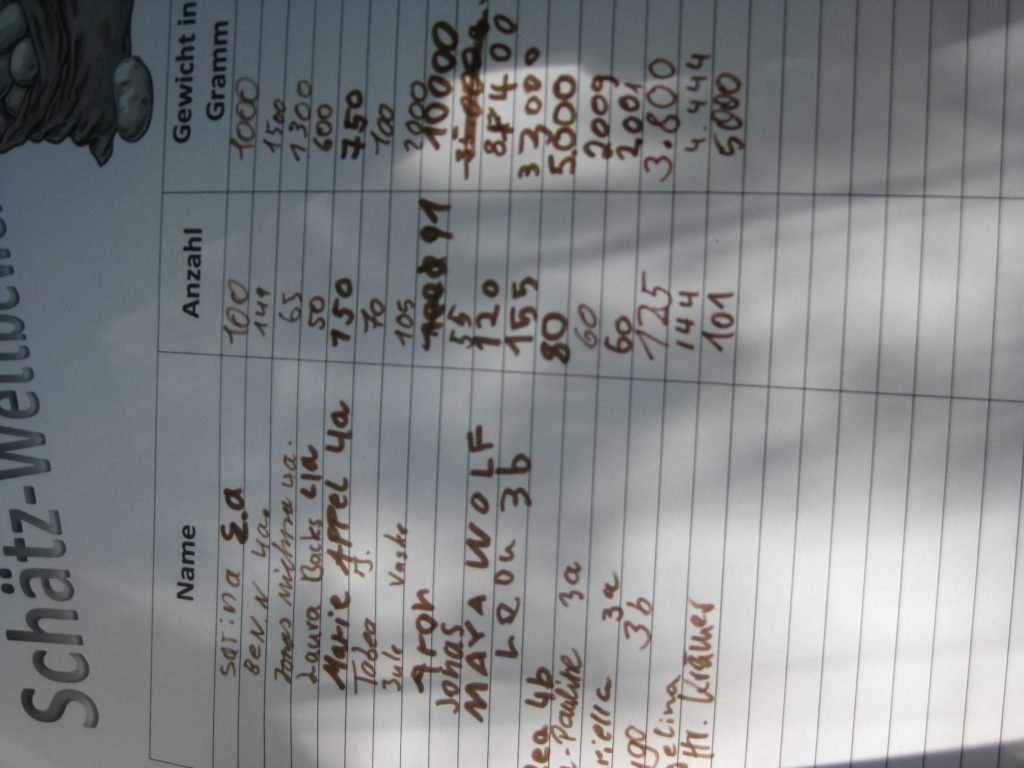 Schätz-Wettbewer
Name Anzahl Gewicht in Gramm
100 1000
Ben.K 4a. 149 1500
Jonas 4a. 65 1300
Laura Backs 4a 50 600
Marie Appel 4a 150 750
Tabea J. 70 100
Jule Vaske 105 2000
Aron 91 10000
Jonas 55
MAYA WOLF 120 400
Leon 3b 155 33000
ea 4b 80 5000
-Pauline 3a 60 2009
riella 3a 60 2001
3b 125 3.800
elina 144 4.444
Hr. Krämer 101 5000